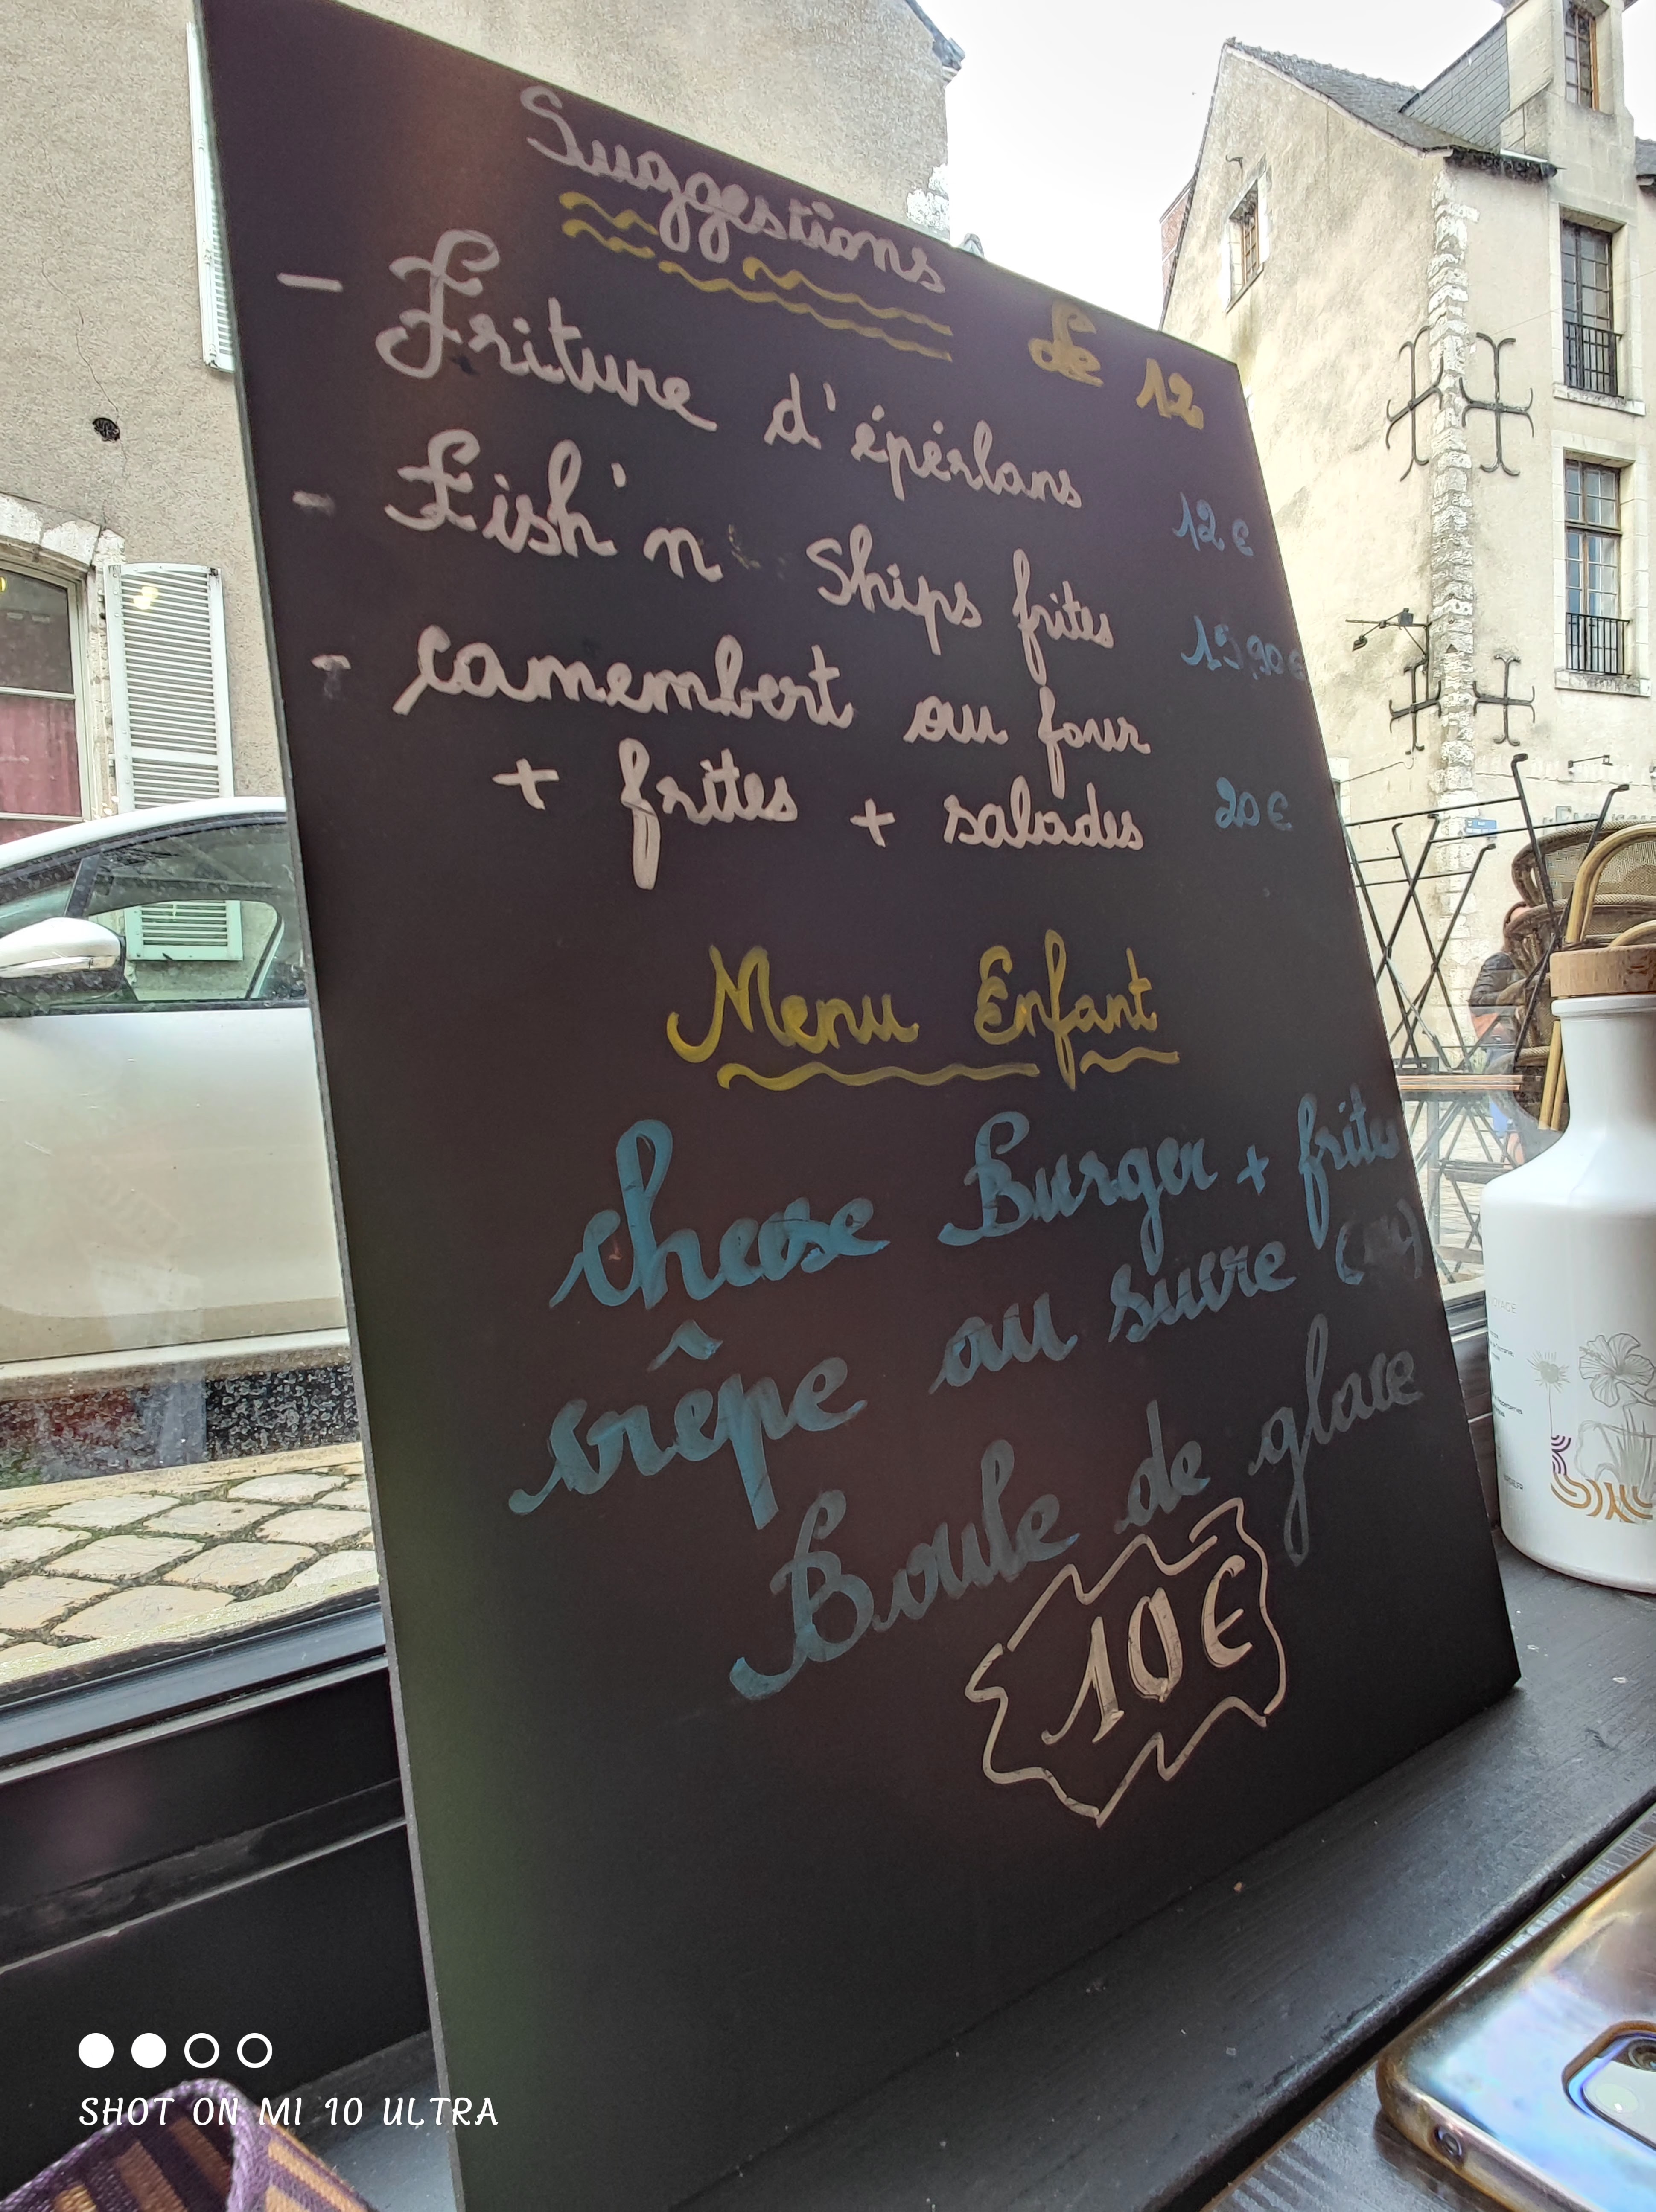 Suggestions
de 12
- Friture d'épérlans 12 €
- Fish'n Ships frites 15,90€
- camembert au four
+ frites + salades 20€
Menu Enfant
cheese Burger + frites
crêpe au sucre (ou)
Boule de glace
10€
SHOT ON MI 10 ULTRA